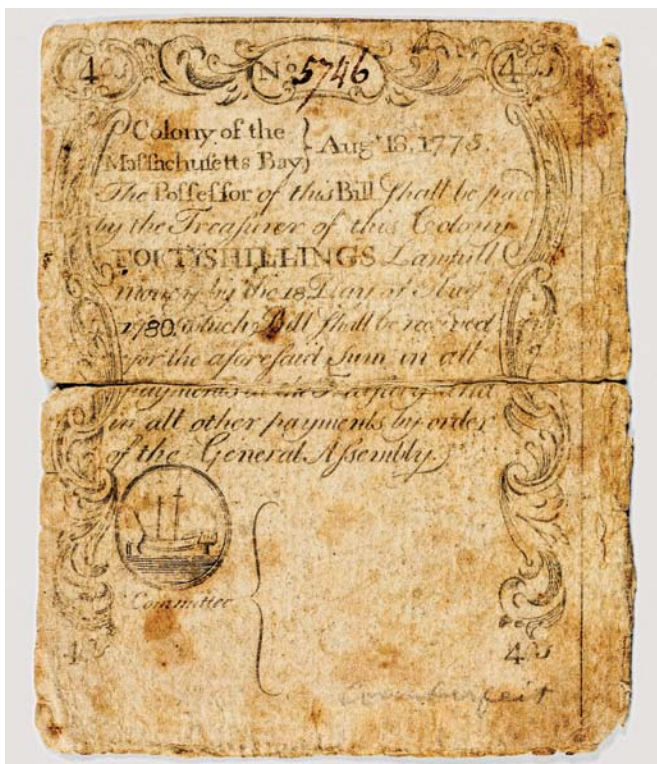 4 No 5746 4
Colony of the
Massachusetts Bay } Augt 18, 1775.
The Possessor of this Bill shall be paid
by the Treasurer of this Colony
FORTY SHILLINGS Lawfull
money by the 18 Day of Augt
1780. which Bill shall be received
for the aforesaid Sum in all
payments in the Treasury and
in all other payments by order
of the General Assembly
Committee
4 4
Counterfeit